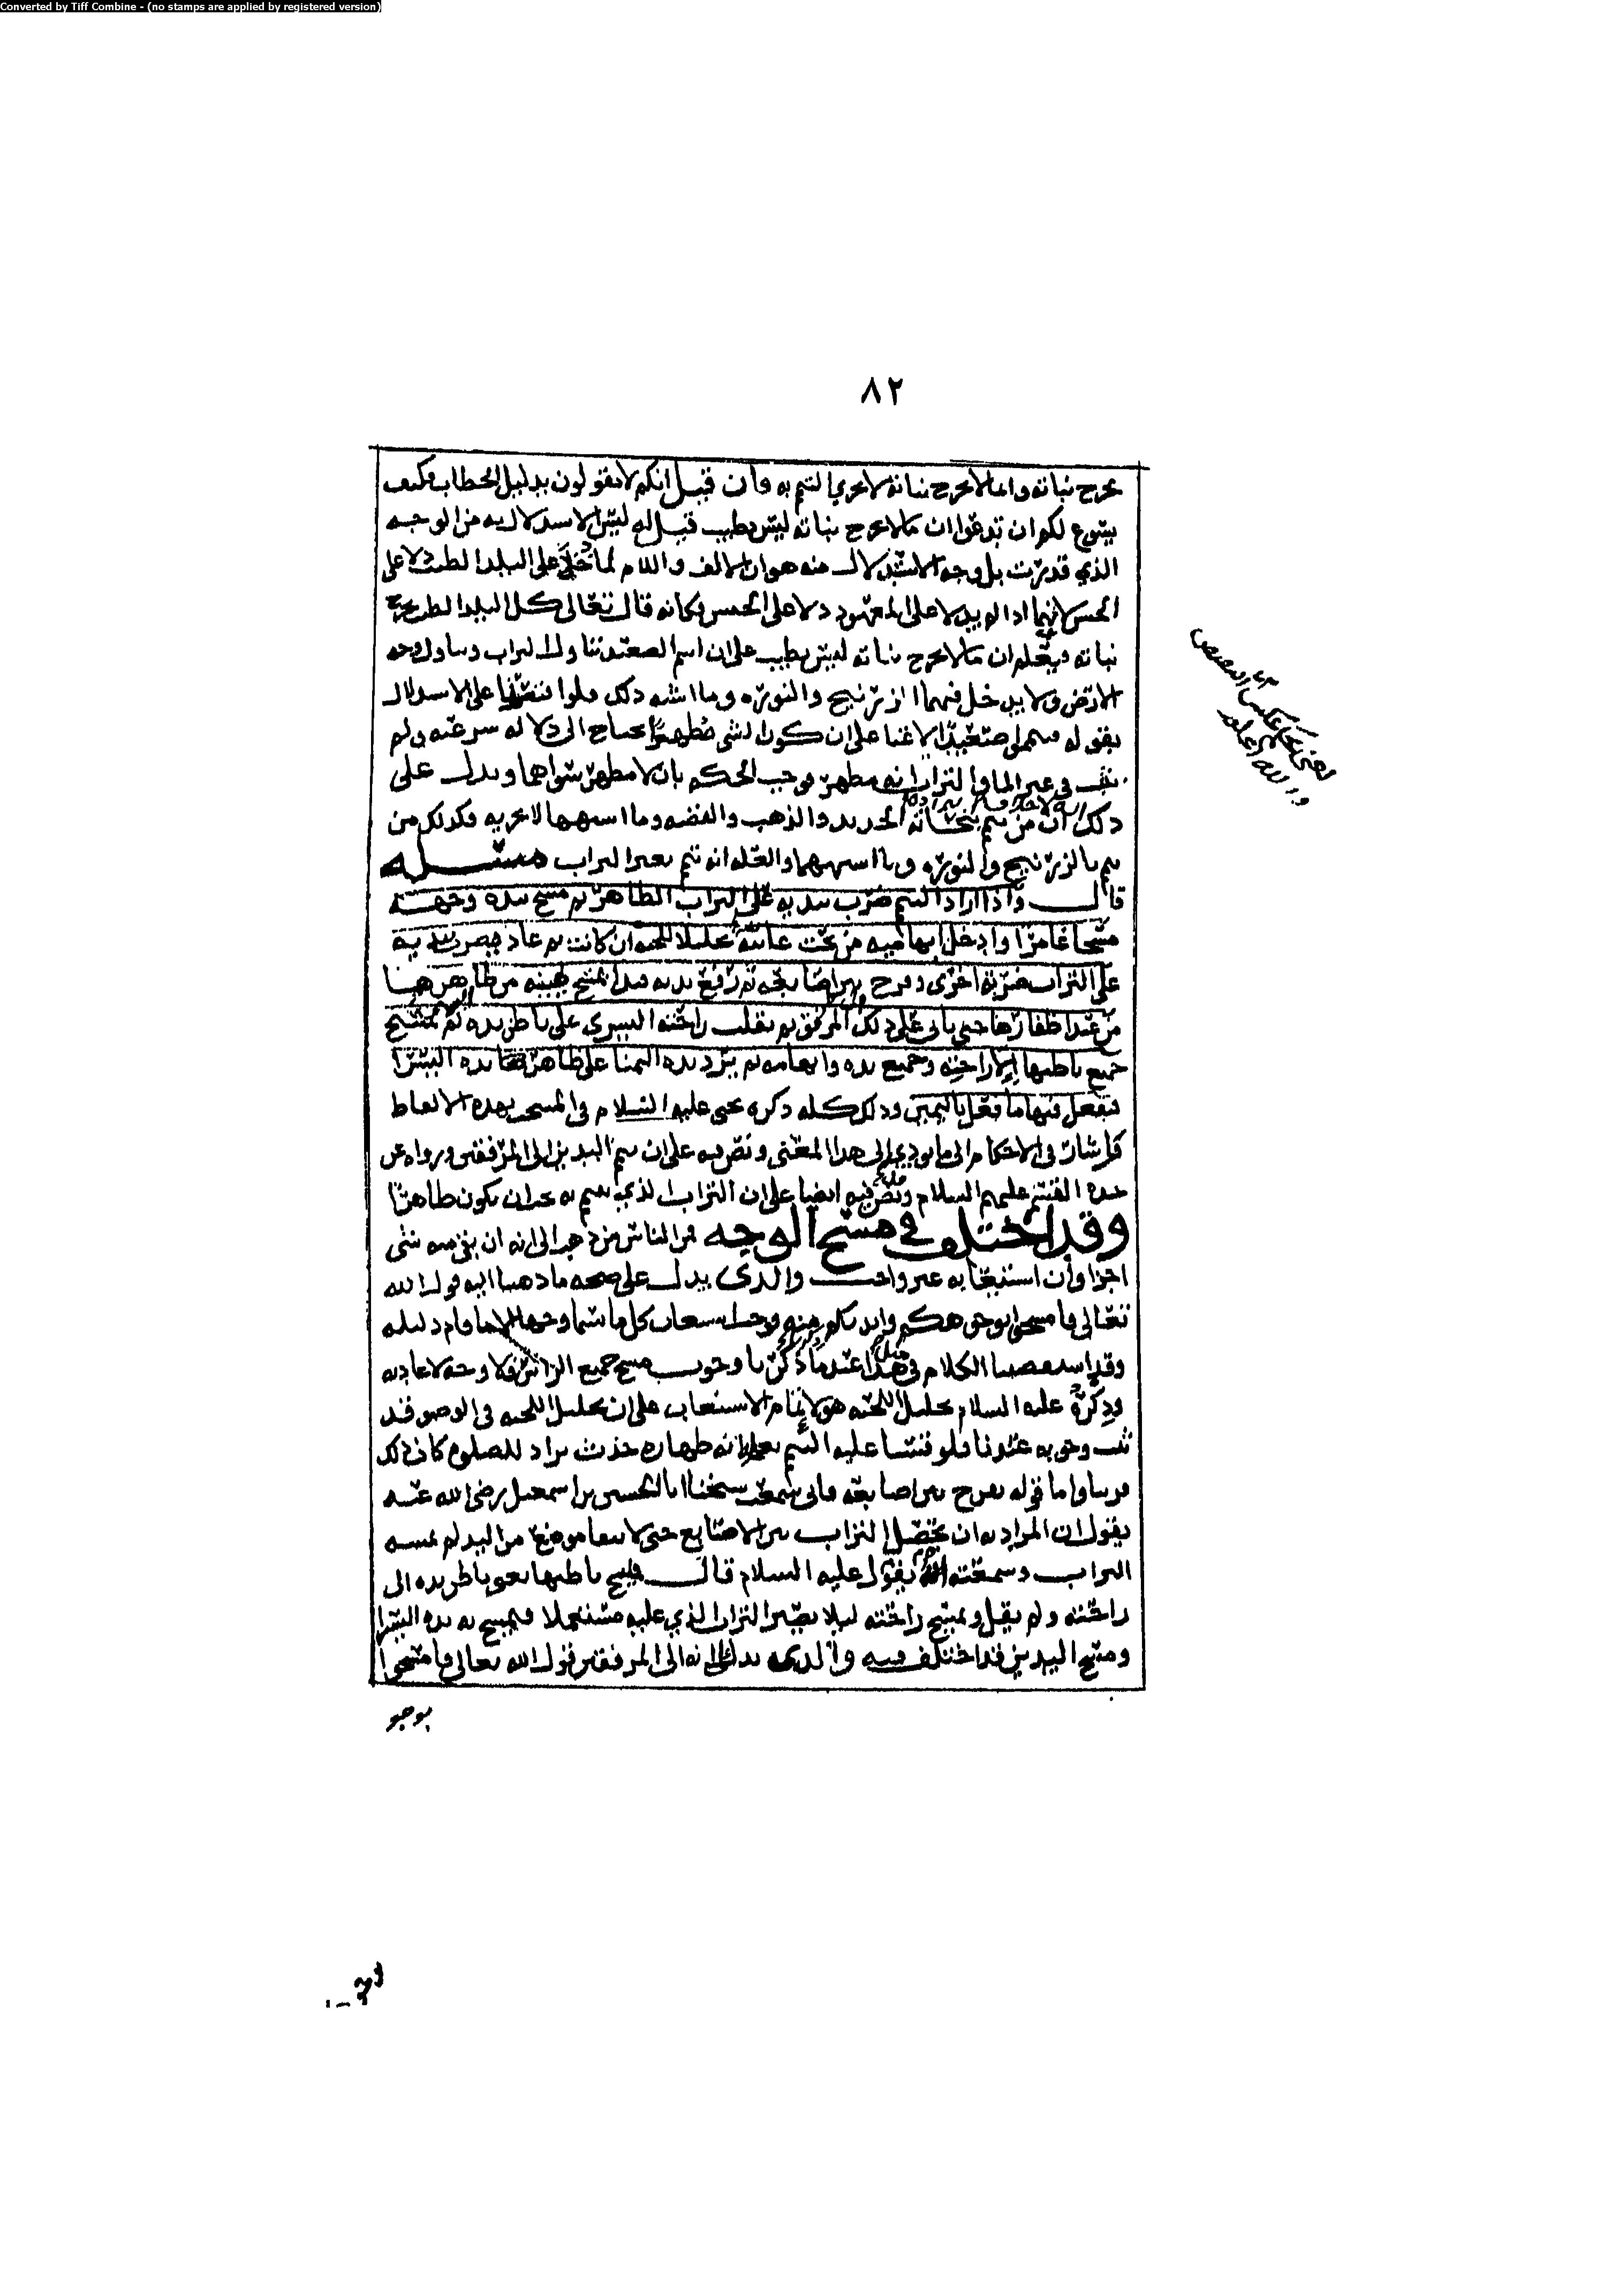 Converted by Tiff Combine - (no stamps are applied by registered version)
٨٢
يخرج نباته وانما لا يخرج نباته لا يجزي التيمم به فان قيل انكم لا تقولون بدليل الخطاب فكيف
لكم ان تدعوا ان ما لا يخرج نباته ليس بطيب قيل له ليس الاستدلال به من الوجه
الذي قدرت بل وجه الاستدلال منه هو ان الالف واللام لما دخلا على البلد الطيب دلا على
الجنس لانهما اذا لم يدلا على المعهود دلا على الجنس فكانه قال تعالى كل البلد الطيب يخرج
نباته فيعلم ان ما لا يخرج نباته ليس بطيب على ان اسم الصعيد يتناول التراب ويتناول وجه
الارض ولا يدخل فيهما الزرنيخ والنوره وما اشبه ذلك على الاستدلال
بقوله فتيمموا صعيدا على ان كون الشي مطهرا يحتاج الى دلاله شرعيه ولم
في غير الماء والتراب انه مطهر فوجب الحكم بان لا مطهر سواهما ويدل على
ذلك ان من تيمم الحديد والذهب والفضه وما اشبهها لا يجزيه فكذلك من
تيمم بالزرنيخ والنوره وما اشبههما والعله انه تيمم بغير التراب مسئله
قال واذا اراد التيمم ضرب بيديه على التراب الطاهر ثم مسح بيده وجهه
مسحا غامرا وادخل ابهاميه من تحت تخليلا للحيه ان كانت ثم عاد فضرب بيديه
على التراب ضربه اخرى وفرج بين اصابعه ثم رفع يديه فبدا بمسح يمينه من ظاهرها
من عند اظفارها حتى ياتي على ذلك المرفق ثم يقلب راحته اليسرى على باطن يده ثم يمسح
جميع باطنها الى راحته وجميع يده وابهامه ثم يرد يده اليمنا على ظاهر يده اليسرا
فيفعل فيها ما فعل باليمين وذلك كله ذكره يحيى عليه السلام في المنتخب بهذه الالفاظ
واشار في الاحكام الى ما يودي الى هذا المعنى ونص فيه على ان تيمم اليدين الى المرفقين ورواه عن
جده القسم عليهم السلام ونص فيه ايضا على ان التراب الذي يتيمم به يجب ان يكون طاهرا
وقد اختلف في مسح الوجه فمن الناس من ذهب الى انه ان بقي منه شي
اجزا وان استيعابه غير واجب والذي يدل على صحه ما ذهبنا اليه قول الله
تعالى فامسحوا بوجوهكم وايديكم منه فوجب استيعاب كل ما سمي وجها الا ما قام دليله
وقد استقصينا الكلام في هذا عند ما ذكرنا وجوب مسح جميع الراس فلا وجه لاعادته
وذكره عليه السلام تخليل اللحيه هو لاتمام الاستيعاب على ان تخليل اللحيه في الوضو قد
ثبت وجوبه عندنا فلو قسنا عليه التيمم بعله انه طهاره حدث تراد للصلوه كان ذلك
قريبا واما قوله يفرج بين اصابعه فاني سمعت شيخنا ابا الحسين بن اسمعيل رضي الله عنه
يقول ان المراد به ان يحصل التراب بين الاصابع حتى لا يبقا موضع من اليد لم يمسه
التراب وسمعته يقول عليه السلام قال فيمسح باطنها يعني باطن يده الى
راحته ولم يقل ويمسح راحته ليلا يصير التراب الذي عليه مستعملا فيمسح به يده اليسرا
ومسح اليدين قد اختلف فيه والذي يدل انه الى المرفقين قول الله تعالى فامسحوا
بوجو